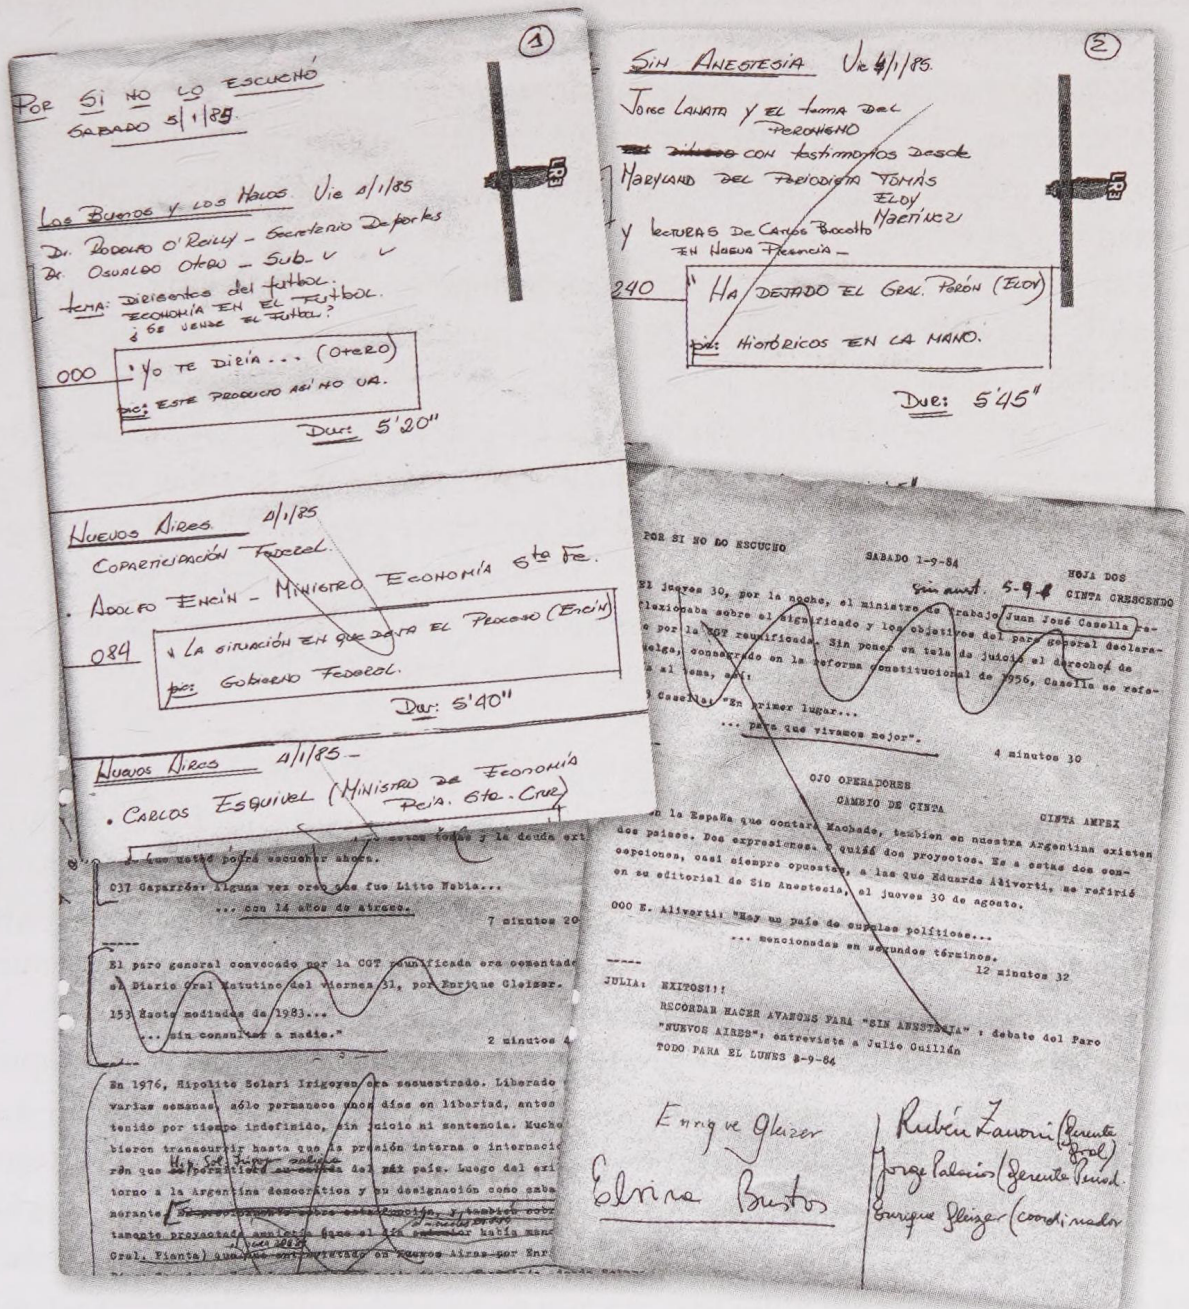 1
POR SI NO LO ESCUCHÓ
SABADO 5/1/85
Los Buenos y los Malos. Vie 4/1/85
Dr. RODOLFO O'REILLY - Secretario Deportes
Dr. OSVALDO OTERO - Sub.
tema: Dirigentes del futbol.
ECONOMÍA EN EL FUTBOL.
¿SE VENDE EL FUTBOL?
000 "YO TE DIRÍA... (OTERO)
pie: ESTE PRODUCTO ASÍ NO VA.
Dur: 5'20"
NUEVOS AIRES. 4/1/85
COPARTICIPACIÓN Federal.
. ADOLFO ENCÍN - MINISTRO ECONOMÍA Sta Fe.
084 " LA SITUACIÓN EN QUE DEJA EL PROCESO (ENCÍN)
pie: GOBIERNO FEDERAL.
Dur: 5'40"
NUEVOS AIRES 4/1/85-
. CARLOS ESQUIVEL (MINISTRO DE ECONOMÍA
Pcia. Sta. Cruz)
2
SIN ANESTESIA Vie 4/1/85.
Jorge LANATA Y EL tema DEL
PERONISMO
CON testimonios Desde
MARYLAND DEL PERIODISTA TOMÁS
ELOY
MARTÍNEZ
Y lecturas DE Carlos Brocatto
EN NUEVA Presencia -
240 " HA DEJADO EL GRAL. PERÓN (ELOY)
pie: HISTÓRICOS EN LA MANO.
Dur: 5'45"
POR SI NO LO ESCUCHO SABADO 1-9-84 HOJA DOS
sin anest. 5-9- CINTA CRESCENDO
El jueves 30, por la noche, el ministro de Trabajo Juan José Casella re-
flexionaba sobre el significado y los objetivos del paro general declara-
por la CGT reunificada. Sin poner en tela de juicio el derecho de
huelga, consagrado en la reforma constitucional de 1956, Casella se refe-
al tema, así:
Casella: "En primer lugar...
... para que vivamos mejor".
4 minutos 30
OJO OPERADORES
CAMBIO DE CINTA
CINTA AMPEX
en la España que contara Machado, tambien en nuestra Argentina existen
dos países. Dos expresiones. O quizá dos proyectos. Es a estas dos con-
cepciones, casi siempre opuestas, a las que Eduardo Aliverti, se refirió
en su editorial de Sin Anestesia, el jueves 30 de agosto.
000 E. Aliverti: "Hay un país de cupulas políticas...
... mencionadas en segundos términos.
12 minutos 32
JULIA: EXITOS!!!
RECORDAR HACER AVANCES PARA "SIN ANESTESIA" : debate del Paro
"NUEVOS AIRES", entrevista a Julio Guillán
TODO PARA EL LUNES 3-9-84
Enrique Gleizer
Elvira Bustos
Rubén Zanoni (Gerente
Gral)
Jorge Palacios (Gerente Period.
Enrique Gleizer (coordinador
y la deuda ext
que usted podrá escuchar ahora.
037 Caparrós: Alguna vez creo que fue Litto Nebia...
... con 14 años de atraso.
7 minutos 20
El paro general convocado por la CGT reunificada era comentado
el Diario Oral Matutino del viernes 31, por Enrique Gleizer.
153 Hasta mediados de 1983...
... sin consultar a nadie."
2 minutos 4
En 1976, Hipolito Solari Irigoyen era secuestrado. Liberado
varias semanas, sólo permanece unos días en libertad, antes
tenido por tiempo indefinido, sin juicio ni sentencia. Mucho
bieron transcurrir hasta que la presión interna e internaci
Hip. Sol Irigoy saliera
rón que permitiera su salida del país. Luego del exi
torno a la Argentina democrática y su designación como emba
norante,
tamente proyectada amnistía que el día había
Gral. Pianta) que fue entrevistado en Nuevos Aires por Enr